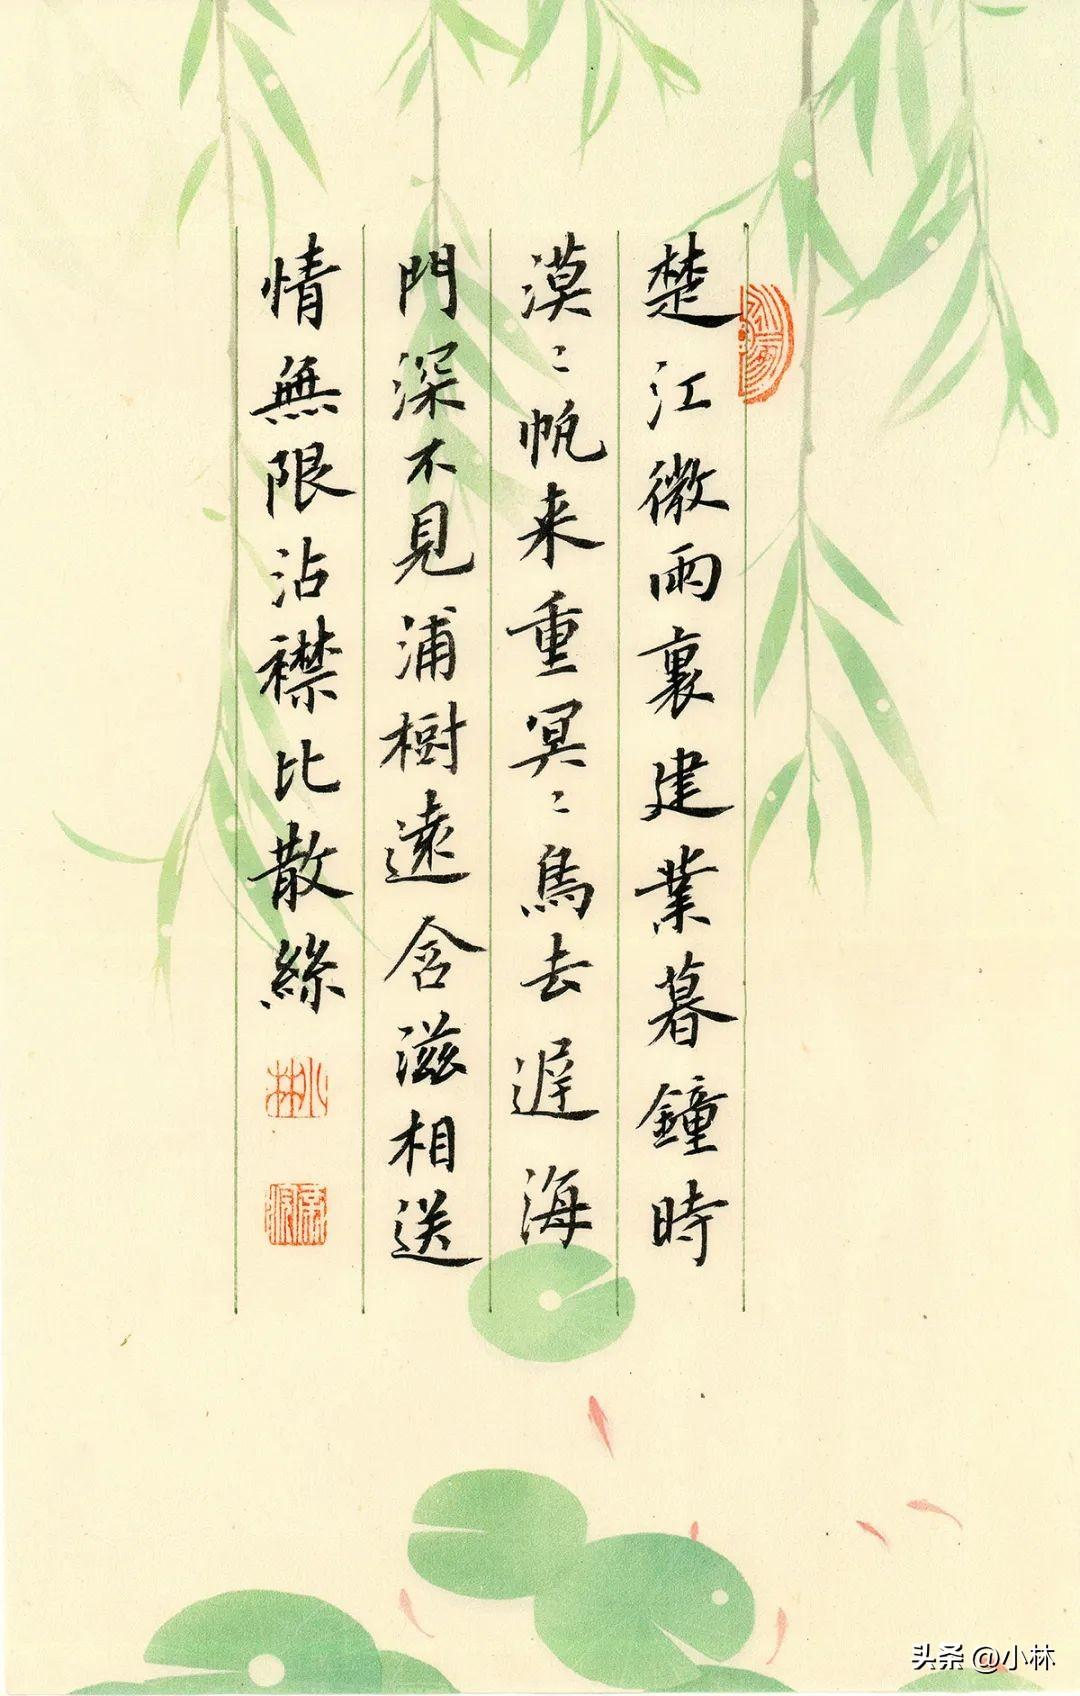 楚江微雨裏建業暮鐘時
漠〻帆来重冥〻鳥去遅海
門深不見浦樹遠含滋相送
情無限沾襟比散絲
小林
头条 @小林